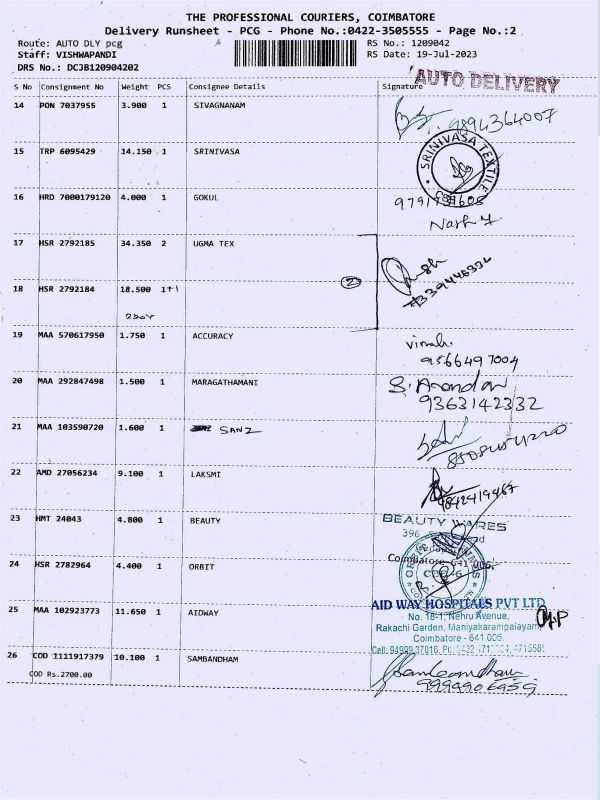 THE PROFESSIONAL COURIERS, COIMBATORE
Delivery Runsheet - PCG - Phone No.:0422-3505555 - Page No.:2
Route: AUTO DLY pcg RS No.: 1209042
Staff: VISHWAPANDI RS Date: 19-Jul-2023
DRS No.: DCJB120904202
AUTO DELIVERY
S No Consignment No Weight PCS Consignee Details Signature
14 PON 7037955 3.900 1 SIVAGNANAM
9894364007
15 TRP 6095429 14.150 1 SRINIVASA
SRINIVASA TEXTILE
16 HRD 7000179120 4.000 1 GOKUL
17 HSR 2792185 34.350 2 UGMA TEX
2
18 HSR 2792184 18.500 1+1
19 MAA 570617950 1.750 1 ACCURACY
9566497004
20 MAA 292847498 1.500 1 MARAGATHAMANI
S. Anandan
9363142332
21 MAA 103590720 1.600 1 SANZ
22 AMD 27056234 9.100 1 LAKSMI
9842419467
23 HMT 24043 4.800 1 BEAUTY
BEAUTY WARES
396
Coimbatore-641 006.
24 HSR 2782964 4.400 1 ORBIT
25 MAA 102923773 11.650 1 AIDWAY
AID WAY HOSPITALS PVT LTD
No. 18-1, Nehru Avenue,
Rakachi Garden, Maniyakarampalayam,
Coimbatore - 641 006.
26 COD 1111917379 10.100 1 SAMBANDHAM
COD Rs.2700.00